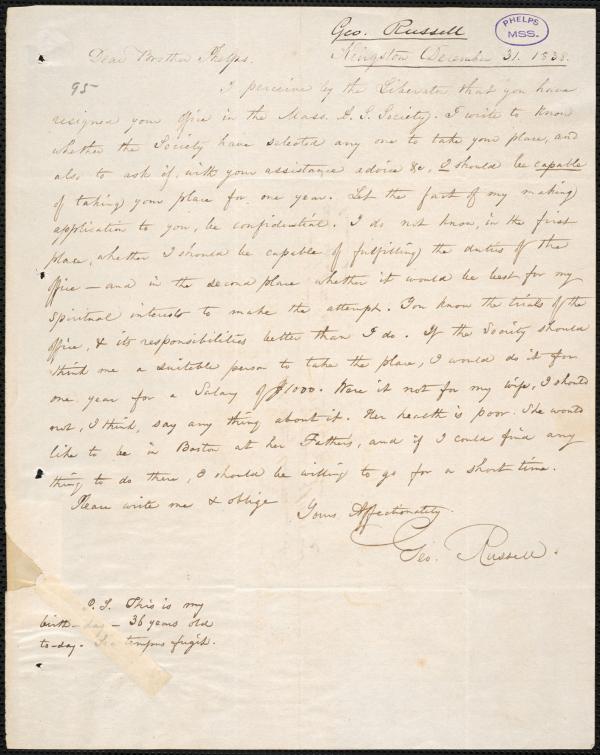 Geo. Russell
PHELPS
MSS.
Kingston December 31. 1838.
Dear Brother Phelps.
95
I perceive by the Liberator that you have
resigned your office in the Mass. A. S. Society. I write to know
whether the Society have selected any one to take your place, and
also to ask if, with your assistance advice &c, I should be capable
of taking your place for one year. Let the fact of my making
application to you, be confidential. I do not know, in the first
place, whether I should be capable of fulfilling the duties of the
office — and in the second place whether it would be best for my
spiritual interests to make the attempt. You know the trials of the
office, & its responsibilities better than I do. If the Society should
think me a suitable person to take the place, I would do it for
one year for a Salary of $1000. Were it not for my wife, I should
not, I think, say any thing about it. Her health is poor. She would
like to be in Boston at her Fathers, and if I could find any
thing to do there, I should be willing to go for a short time.
Please write me & oblige
Yours Affectionately.
Geo. Russell.
P. S. This is my
birth-day — 36 years old
to-day. tempus fugit.